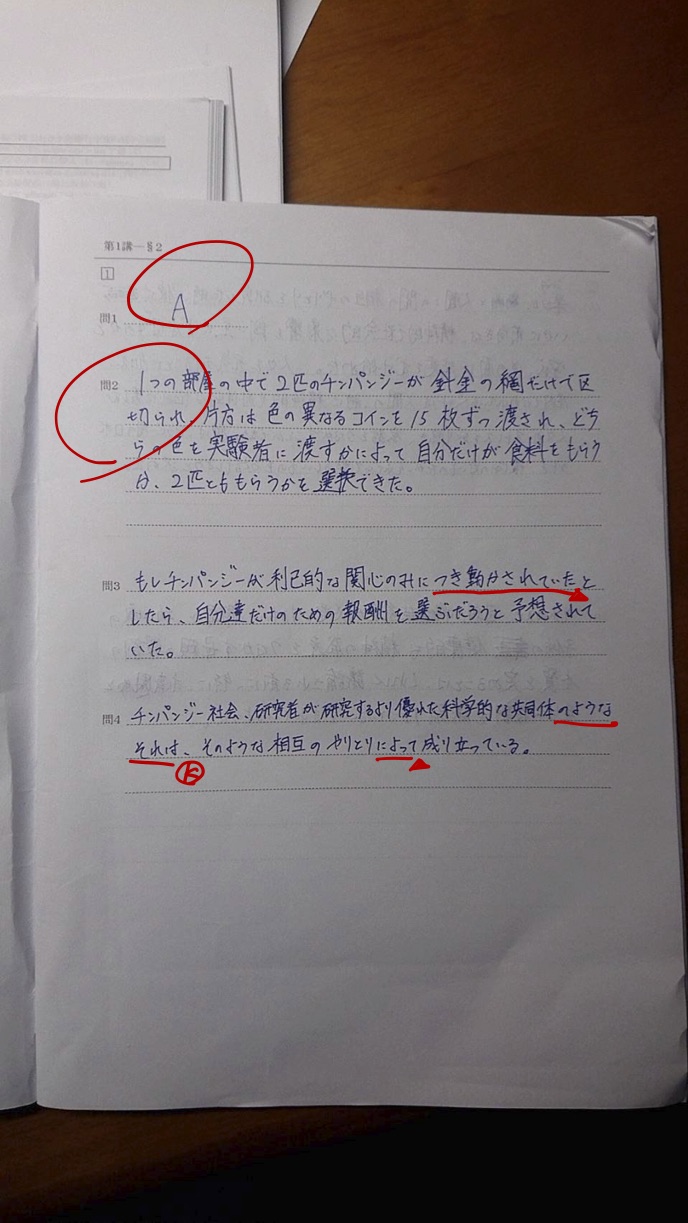 第1講―§2
1
問1 A
問2 1つの部屋の中で2匹のチンパンジーが針金の網だけで区
切られ、片方は色の異なるコインを15枚ずつ渡され、どち
らの色を実験者に渡すかによって自分だけが食料をもらう
か、2匹とももらうかを選択できた。
問3 もしチンパンジーが利己的な関心のみにつき動かされていたと
したら、自分達だけのための報酬を選ぶだろうと予想されて
いた。
問4 チンパンジー社会、研究者が研究するより優れた科学的な共同体のような
それは、そのような相互のやりとりによって成り立っている。